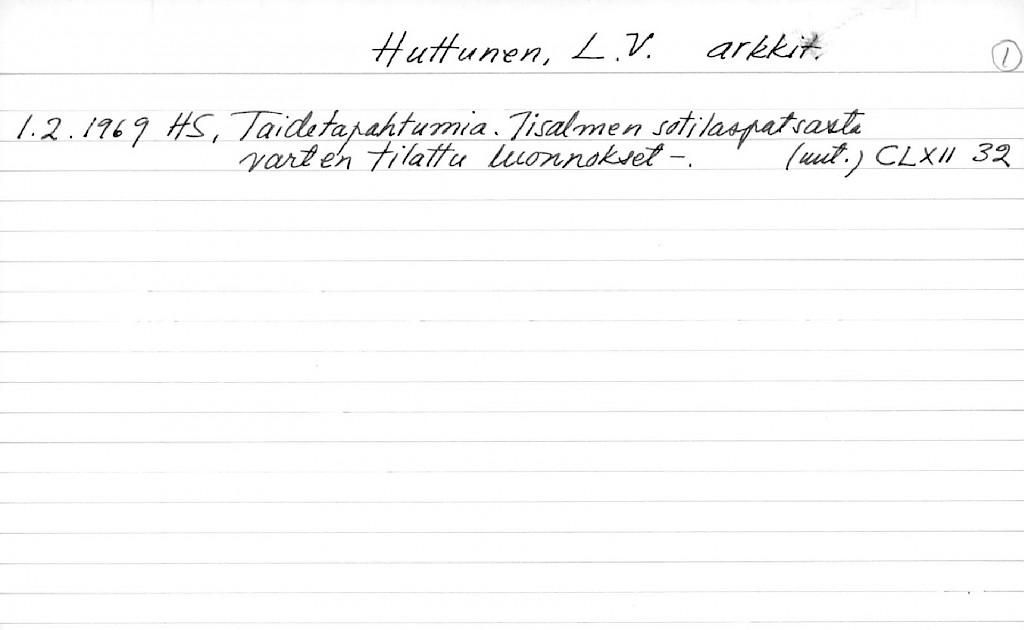 Huttunen, L.V. arkkit. 1
1.2.1969 HS, Taidetapahtumia. Iisalmen sotilaspatsasta
varten tilattu luonnokset -. (uut.) CLXII 32